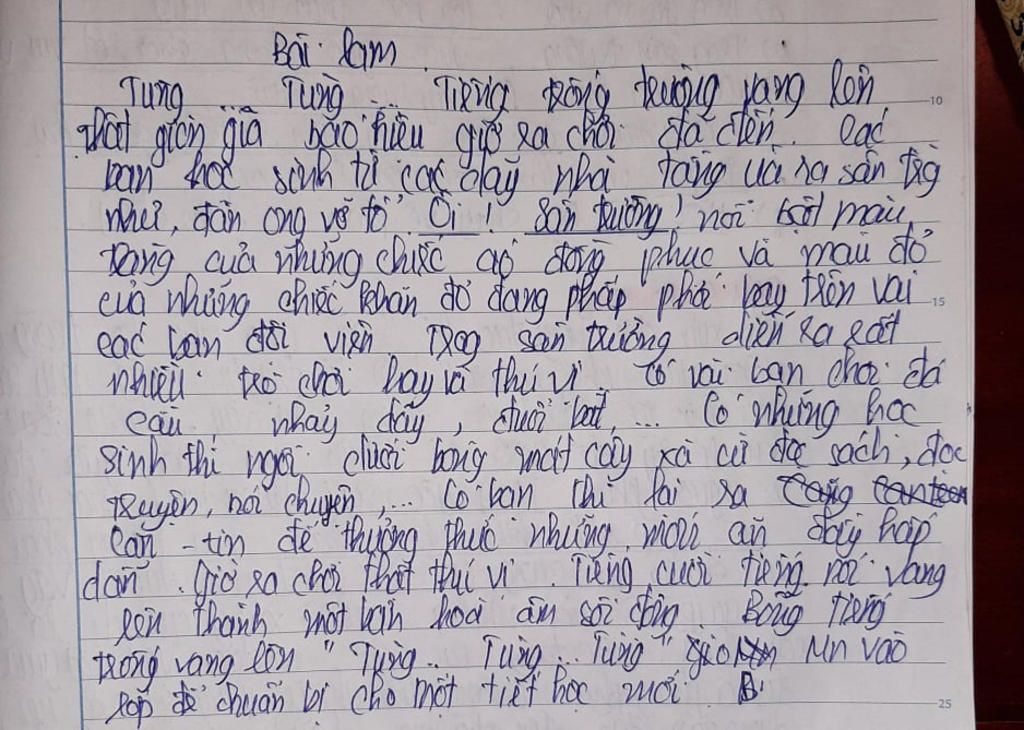 Bài làm
Tùng ... Tùng ... Tiếng trống trường vang lên
thật giòn giã báo hiệu giờ ra chơi đã đến. Các
bạn học sinh từ các dãy nhà tầng ùa ra sân trg
như đàn ong vỡ tổ. Ôi! Sân trường! nơi
trắng của những chiếc áo đồng phục và màu đỏ
của những chiếc khăn đỏ đang phấp phới bay trên vai
các bạn đội viên. Trog sân trường diễn ra rất
nhiều trò chơi hay và thú vị. Có vài bạn chơi đá
cầu, nhảy dây, đuổi bắt, ... Có những học
sinh thì ngồi dưới bóng mát cây xà cừ đọc sách, đọc
truyện, nói chuyện, ... Có bạn thì lại ra
căn-tin để thưởng thức những món ăn đầy hấp
dẫn. Giờ ra chơi thật thú vị. Tiếng cười tiếng nói vang
lên thành một bản hoà âm sôi động. Bỗng tiếng
trống vang lên "Tùng .. Tùng ... Tùng" Mn vào
lớp để chuẩn bị cho một tiết học mới.
10
15
25